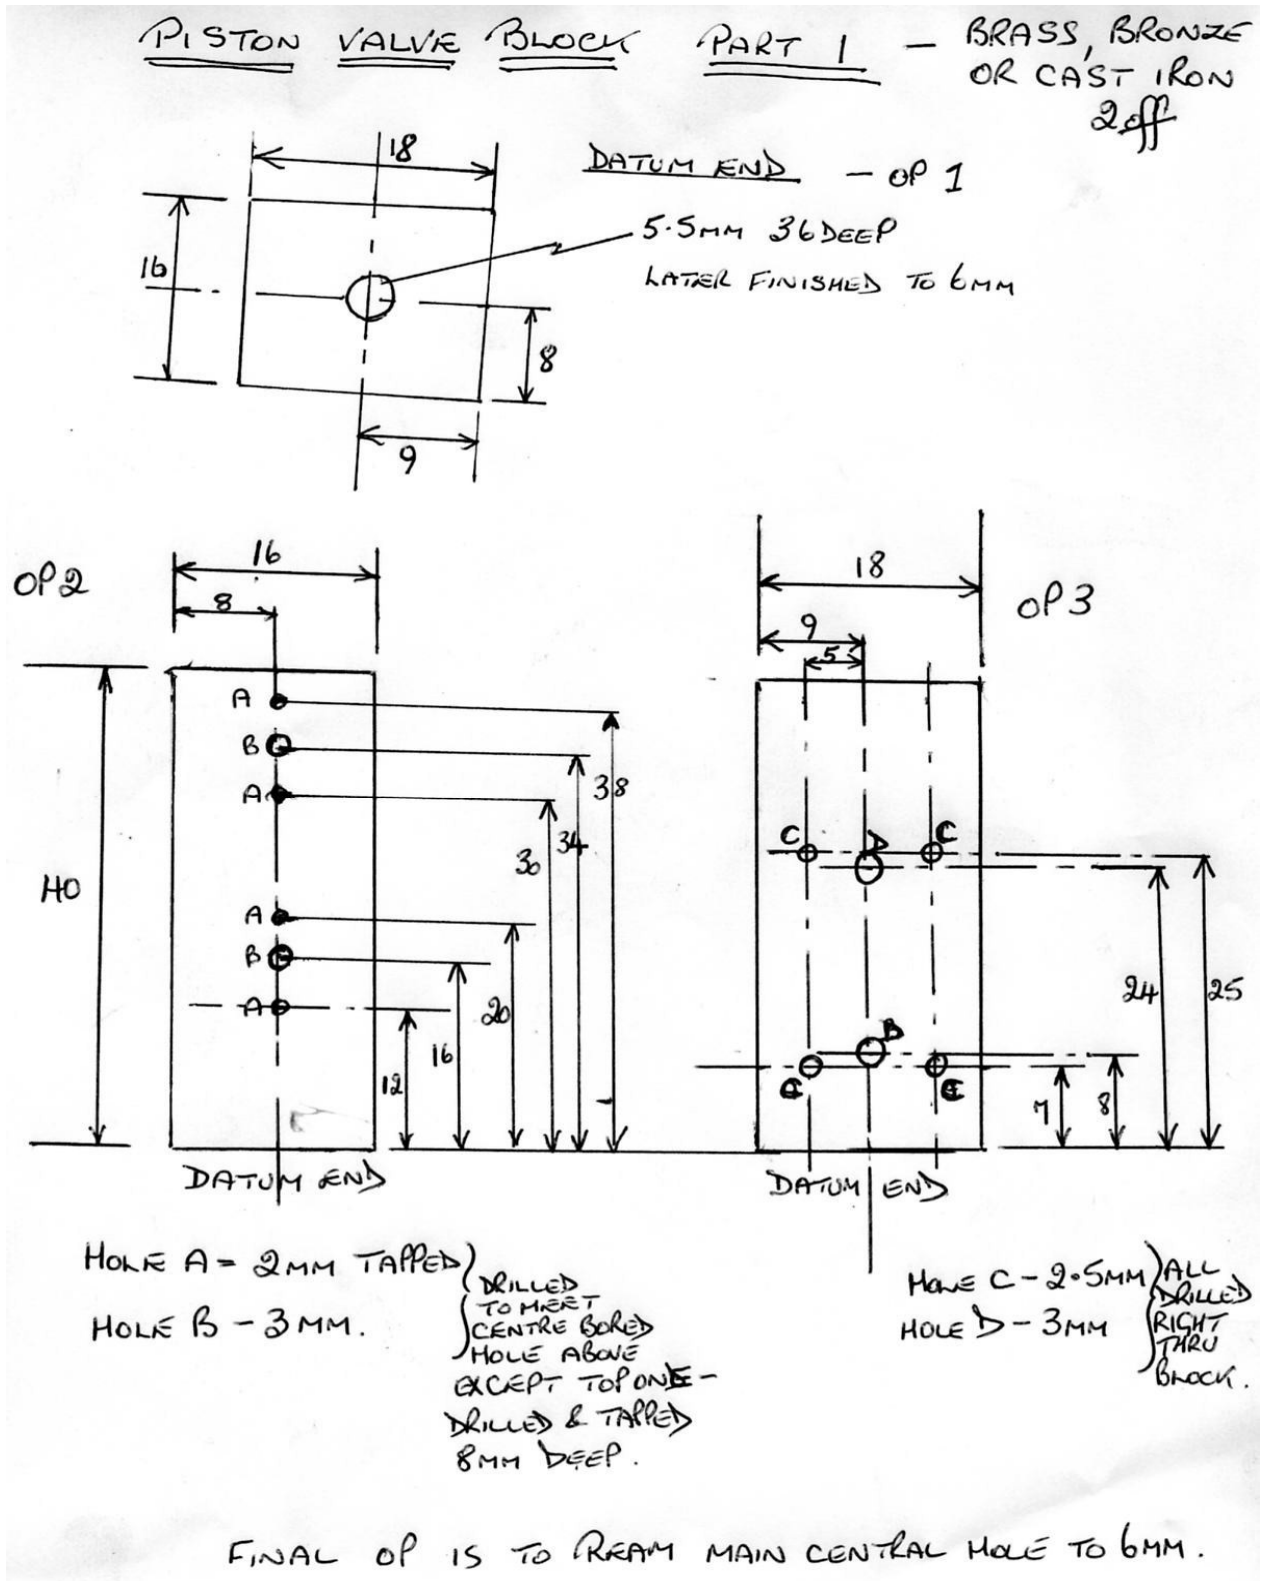 PISTON VALVE BLOCK PART 1 - BRASS, BRONZE
OR CAST IRON
2 off
18
DATUM END - OP 1
5.5MM 36 DEEP
LATER FINISHED TO 6MM
16
8
9
OP2
16
8
18
OP3
9
5
A
B
A
38
34
30
40
C
D
C
A
B
A
20
16
12
24
25
B
C
C
7
8
DATUM END
DATUM END
HOLE A = 2MM TAPPED
HOLE B - 3MM.
DRILLED
TO MEET
CENTRE BORED
HOLE ABOVE
EXCEPT TOP ONE -
DRILLED & TAPPED
8MM DEEP.
HOLE C - 2.5MM
HOLE D - 3MM
ALL
DRILLED
RIGHT
THRU
BLOCK.
FINAL OP IS TO REAM MAIN CENTRAL HOLE TO 6MM.